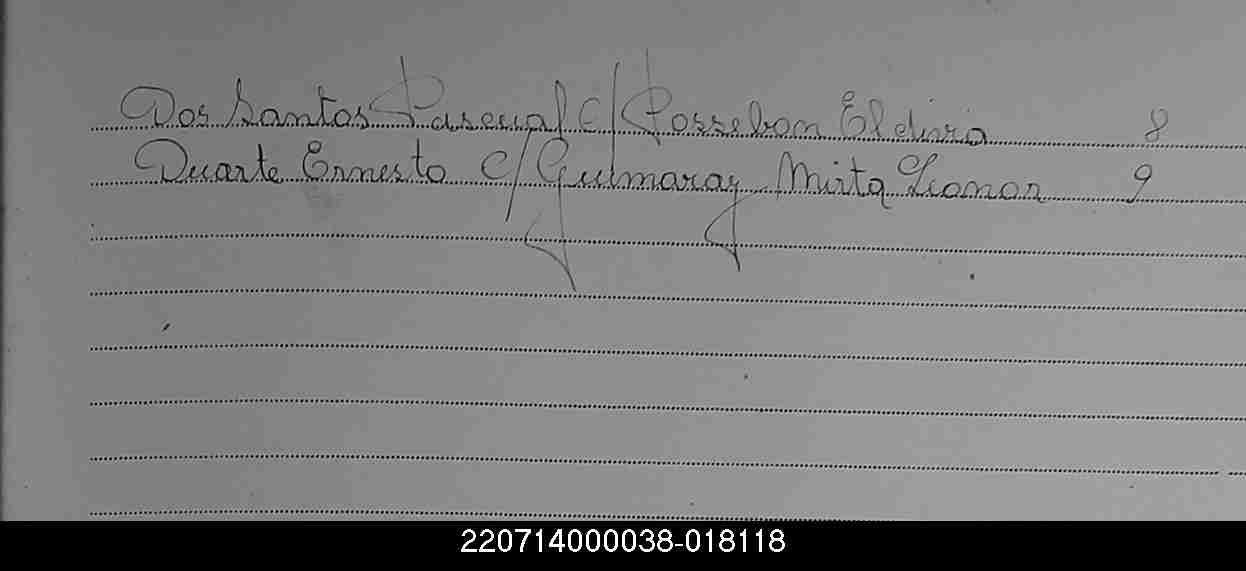 Dos Santos Pascual c/ Possebom Eldira 8
Duarte Ernesto c/ Guimaray Mirta Leonor 9
220714000038-018118